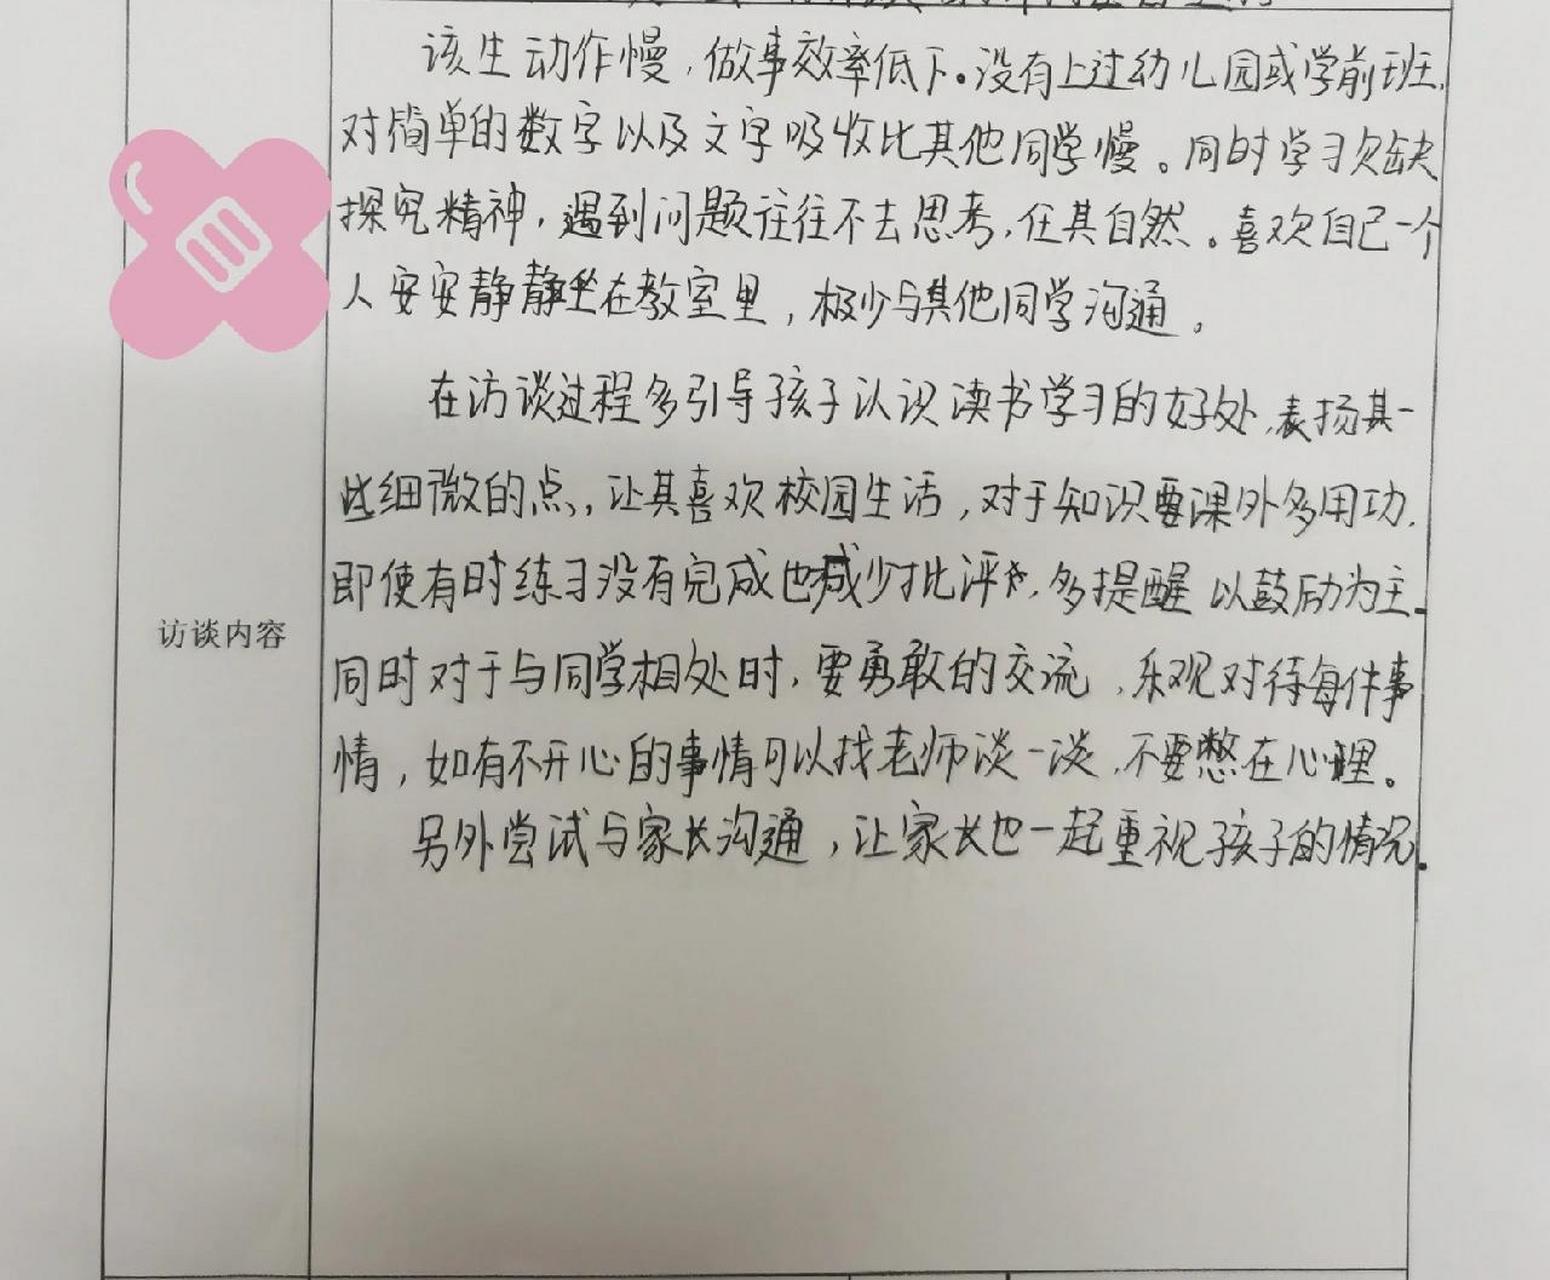 该生动作慢，做事效率低下。没有上过幼儿园或学前班，
对简单的数字以及文字吸收比其他同学慢。同时学习欠缺
探究精神，遇到问题往往不去思考，任其自然。喜欢自己一个
人安安静静坐在教室里，极少与其他同学沟通。
在访谈过程多引导孩子认识读书学习的好处，表扬其一
些细微的点，让其喜欢校园生活，对于知识要课外多用功，
即使有时练习没有完成也减少批评，多提醒以鼓励为主。
访谈内容
同时对于与同学相处时，要勇敢的交流，乐观对待每件事
情，如有不开心的事情可以找老师谈一谈，不要憋在心理。
另外尝试与家长沟通，让家长也一起重视孩子的情况。